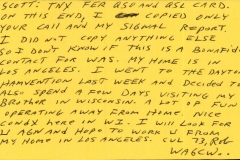 SCOTT: TNX FER QSO AND QSL CARD.
ON THIS END, I COPIED ONLY
YOUR CALL AND MY SIGNAL REPORT.
I DID NOT COPY ANYTHING ELSE
SO I DON'T KNOW IF THIS IS A BONAFIDE
CONTACT FOR WAS. MY HOME IS IN
LOS ANGELES. I WENT TO THE DAYTON
HAMVENTION LAST WEEK AND DECIDED TO
ALSO SPEND A FEW DAYS VISITING MY
BROTHER IN WISCONSIN. A LOT OF FUN
OPERATING AWAY FROM HOME. NICE
CONDX HERE IN WI. I WILL LOOK FOR
U AGN AND HOPE TO WORK U FROM
MY HOME IN LOS ANGELES. CUL 73, ROB